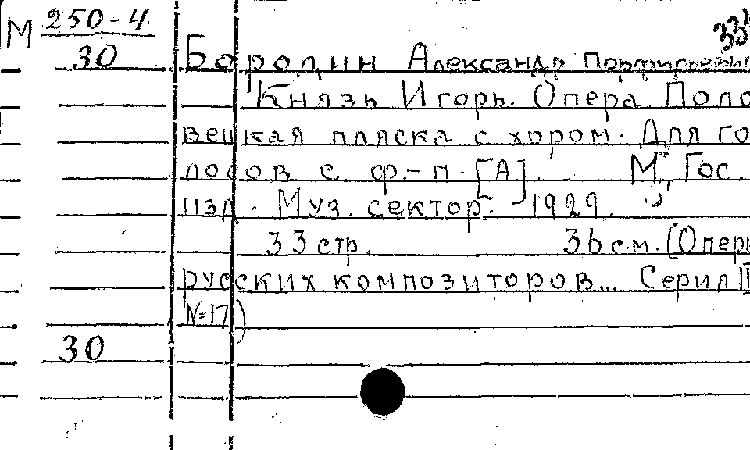 М 250-4 33
30 Бородин Александр Порфирьевич
Князь Игорь. Опера. Поло
вецкая пляска с хором. Для го
лосов с ф.-п. [А]. М., Гос.
изд. Муз. сектор. 1929.
33 стр. 36 см. (Оперы
русских композиторов... Серия
№17)
30